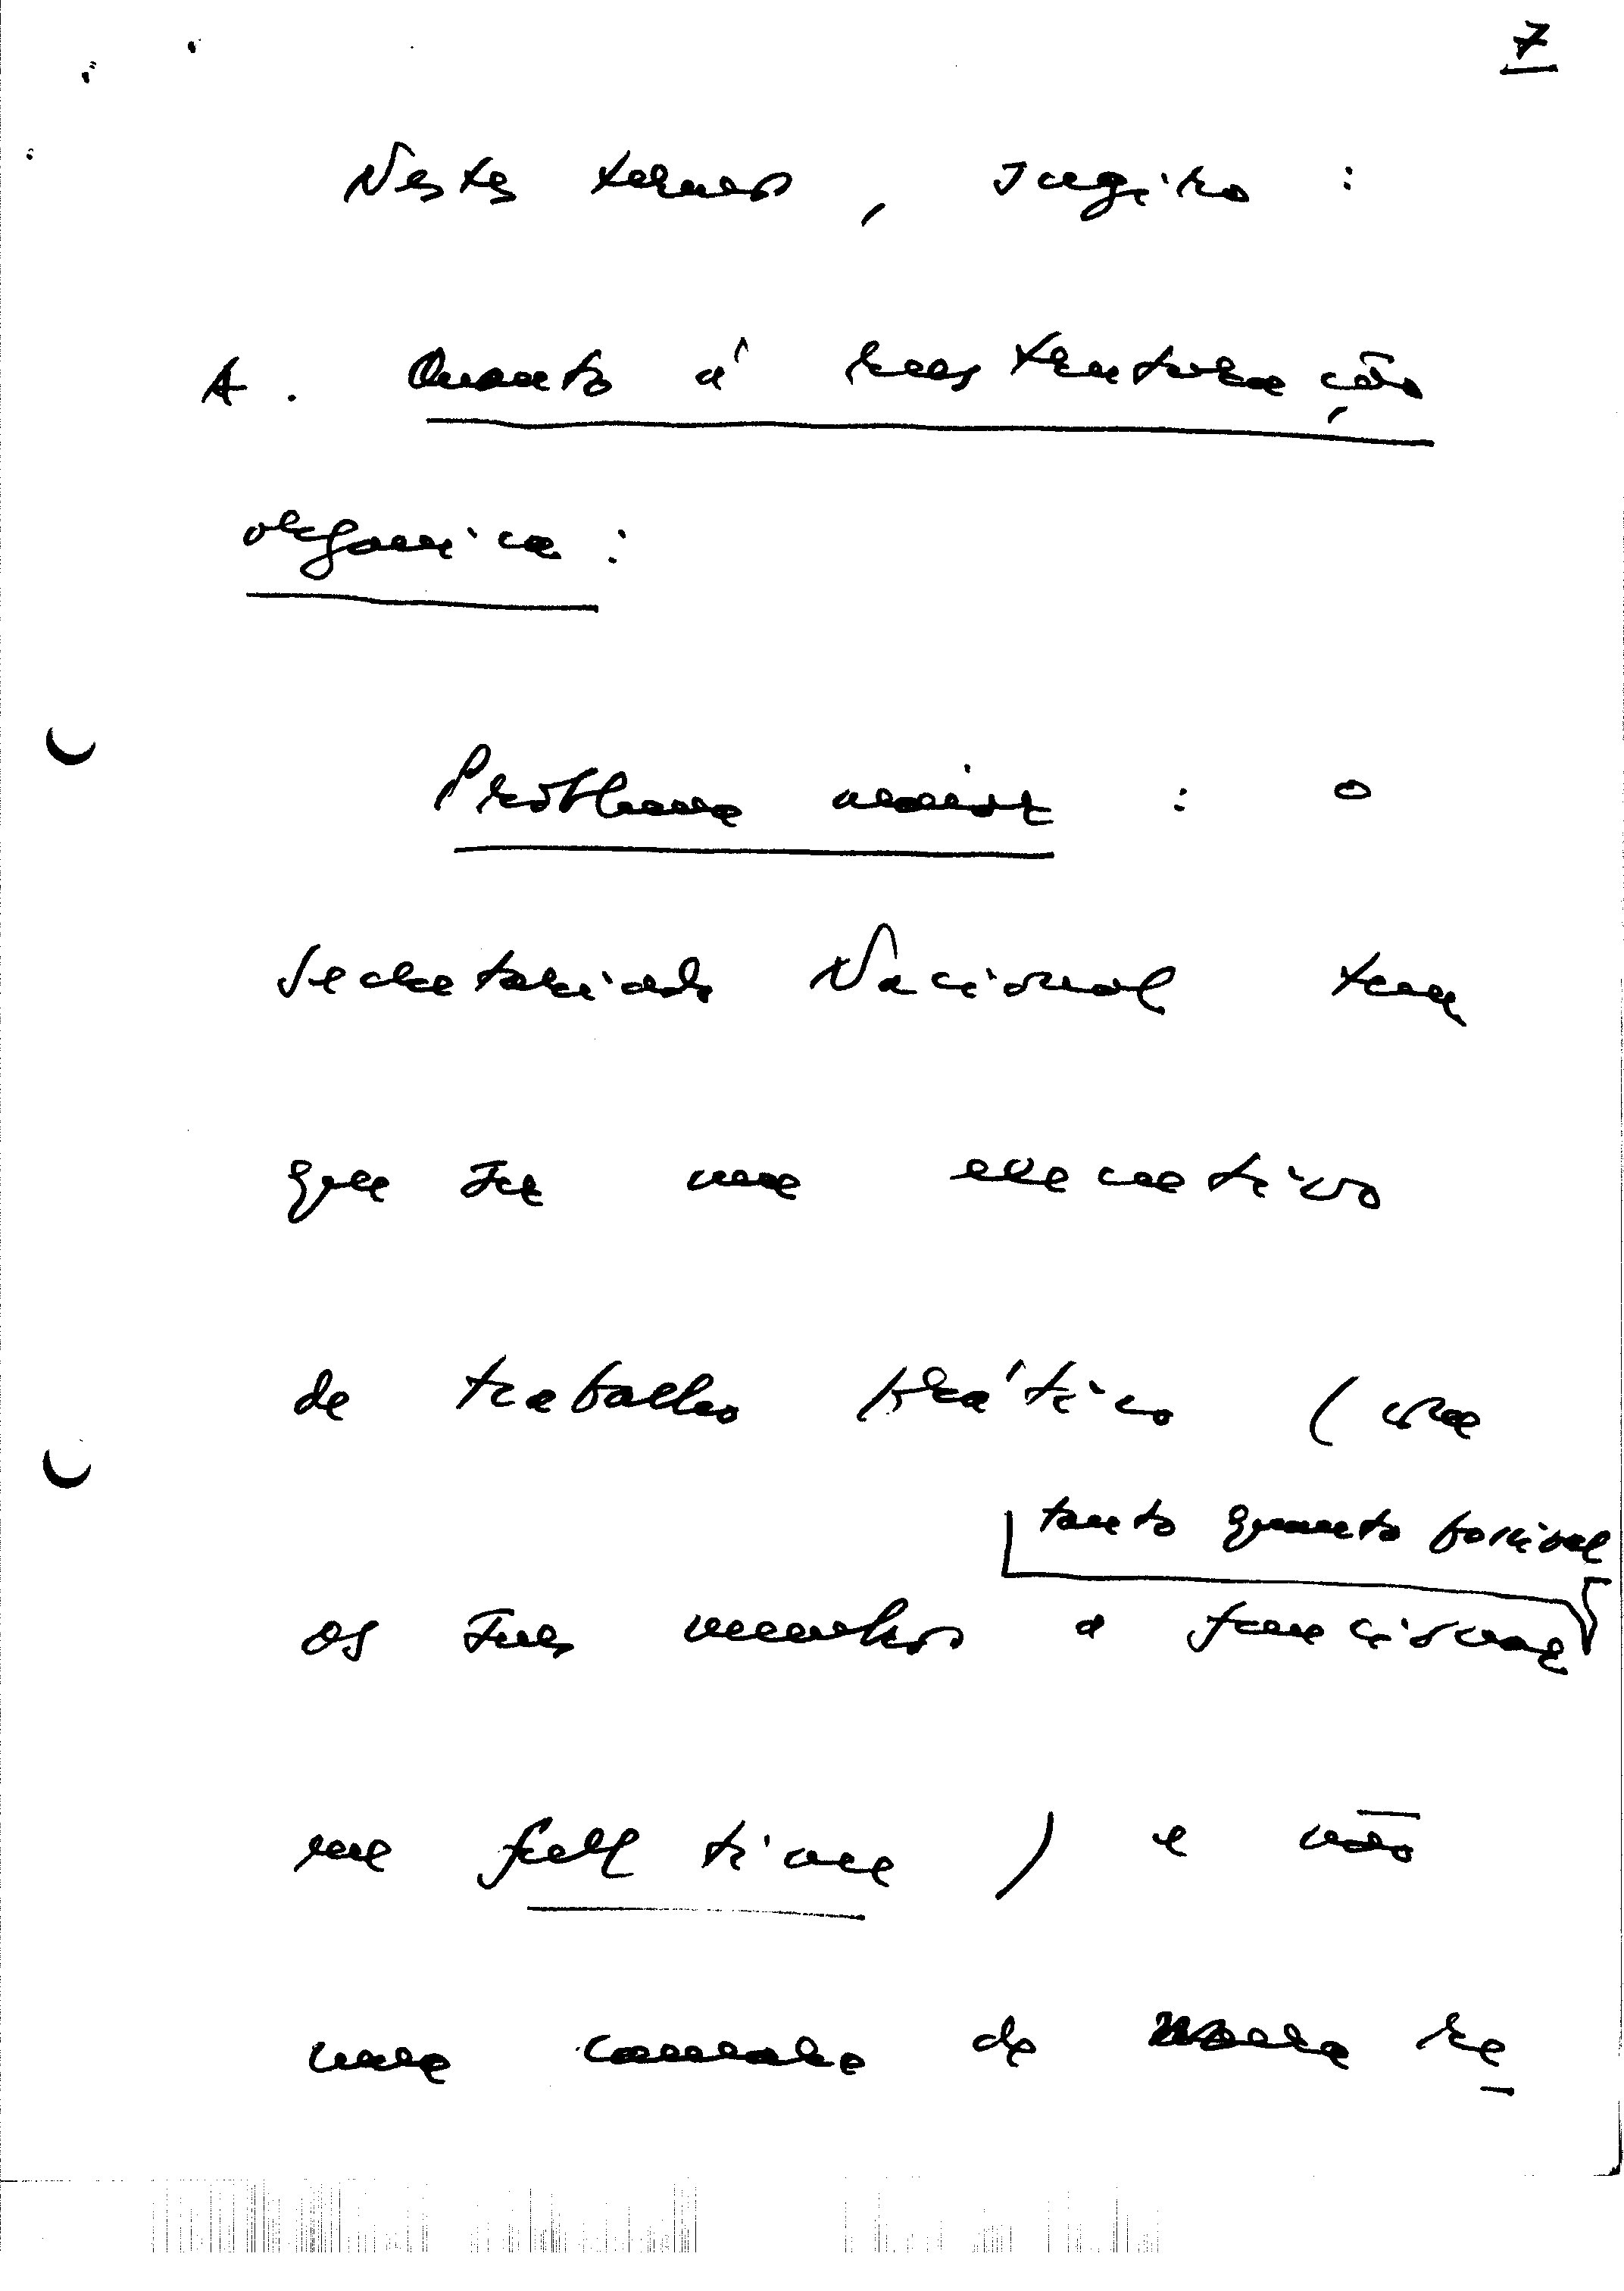 7
Nestes termos, sugiro :
A. Quanto à reestruturação
orgânica :
Problema maior : o
Secretariado Nacional tem
que ser um executivo
de trabalho prático (com
tanto quanto possível
os seus membros a funcionar
em full time) e não
uma camara de mera re_